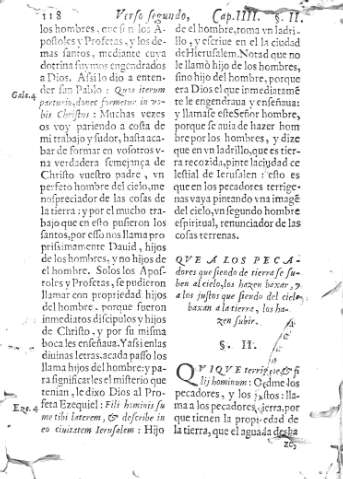 118 Verso segundo, Cap. IIII. §. II.
los hombres, que son los A-
postoles y Profetas, y los de-
mas santos, mediante cuya
dotrina fuymos engendrados
a Dios. Assi lo dio a enten-
der san Pablo: Quos iterum
Gala. 4 parturio, donec formetur in vo-
bis Christus: Muchas vezes
os voy pariendo a costa de
mi trabajo y sudor, hasta aca-
bar de formar en vosotros v-
na verdadera semejança de
Christo vuestro padre, vn
perfeto hombre del cielo, me-
nospreciador de las cosas de
la tierra: y por el mucho tra-
bajo que en esto pusieron los
santos, por esso nos llama pro
prissimamente Dauid, hijos
de los hombres, y no hijos de
el hombre. Solos los Apos-
toles y Profetas, se pudieron
llamar con propriedad hijos
del hombre, porque fueron
inmediatos discipulos y hijos
de Christo, y por su misma
boca les enseñaua. Y assi en las
diuinas letras, acada passo los
llama hijos del hombre: y pa-
ra significarles el misterio que
tenian, le dixo Dios al Pro-
Eze. 4 feta Ezequiel: Fili hominis su
mo tibi laterem, & describe in
eo ciuitatem Ierusalem: Hijo
de el hombre, toma vn ladri-
llo, y escriue en el la ciudad
de Hierusalem. Notad que no
le llamò hijo de los hombres,
sino hijo del hombre, porque
era Dios el que inmediatamẽ
te le engendraua y enseñaua:
y llamase este Señor hombre,
porque se auia de hazer hom
bre por los hombres, y dize
que en vn ladrillo, que es tier-
ra recozida, pinte la ciudad ce
lestial de Ierusalen: esto es
que en los pecadores terrige-
nas vaya pintando vna imagẽ
del cielo, vn segundo hombre
espiritual, renunciador de las
cosas terrenas.
QVE A LOS PECA-
dores que siendo de tierra se su-
ben al cielo, los hazen baxar, y
a los justos que siendo del cielo
baxan a la tierra, los ha-
zen subir.
§. II.
QVIQVE terrigenæ & fi
lij hominum: Oydme los
pecadores, y los justos: lla-
ma a los pecadores tierra, por
que tienen la propiedad de
la tierra, que el agua la desha
ze,